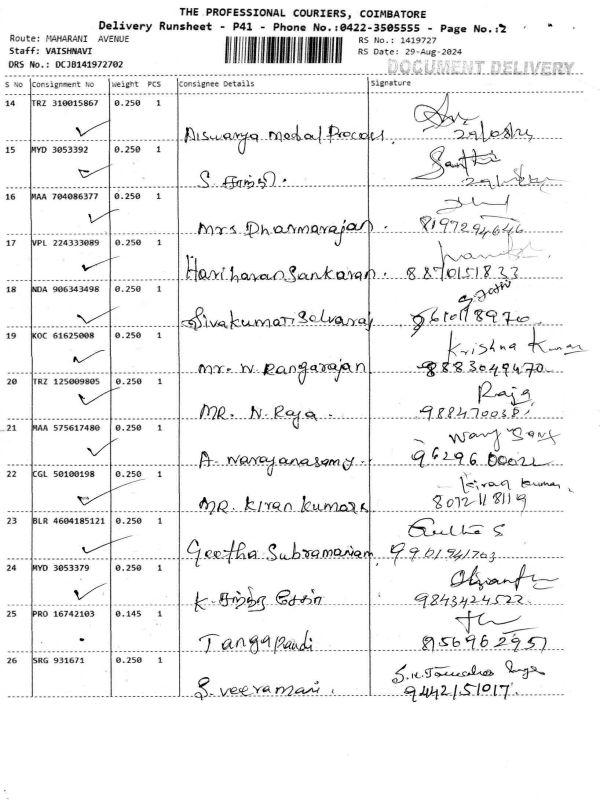 THE PROFESSIONAL COURIERS, COIMBATORE
Delivery Runsheet - P41 - Phone No.:0422-3505555 - Page No.:2
Route: MAHARANI AVENUE RS No.: 1419727
Staff: VAISHNAVI RS Date: 29-Aug-2024
DRS No.: DCJB141972702 DOCUMENT DELIVERY
S No Consignment No Weight PCS Consignee Details Signature
14 TRZ 310015867 0.250 1
Aiswarya
15 MYD 3053392 0.250 1
S. சாந்தி.
16 MAA 704086377 0.250 1
Mrs Dharmarajan. 8197294646
17 VPL 224333089 0.250 1
Hariharan Sankaran. 8870151833
18 NDA 906343498 0.250 1
Sivakumar Selvaraj
19 KOC 61625008 0.250 1 Krishna Kumar
Mr. N. Rangarajan 8883049470
20 TRZ 125009805 0.250 1 Raja
MR. N. Raja.
21 MAA 575617480 0.250 1
A. Narayanasamy.
22 CGL 50100198 0.250 1 Kiran Kumar
MR. Kiran Kumars 8072118119
23 BLR 4604185121 0.250 1 Geetha S
Geetha Subramaniam 9901941703
24 MYD 3053379 0.250 1
9843424522
25 PRO 16742103 0.145 1
Tangapandi 8156962951
26 SRG 931671 0.250 1
S. veeramani. 9442151017.